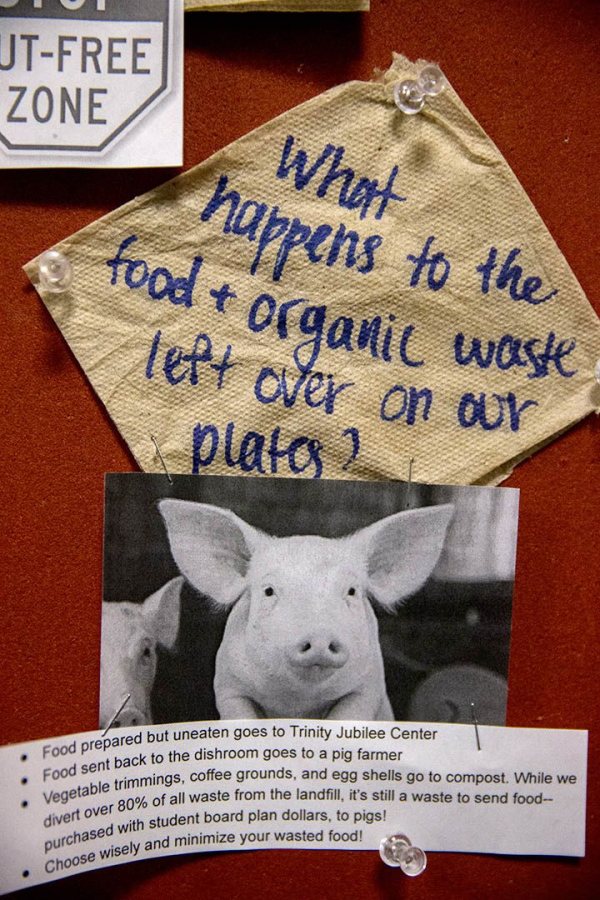 UT-FREE
ZONE
What
happens to the
food + organic waste
left over on our
plates?
• Food prepared but uneaten goes to Trinity Jubilee Center
• Food sent back to the dishroom goes to a pig farmer
• Vegetable trimmings, coffee grounds, and egg shells go to compost. While we
divert over 80% of all waste from the landfill, it's still a waste to send food--
purchased with student board plan dollars, to pigs!
• Choose wisely and minimize your wasted food!